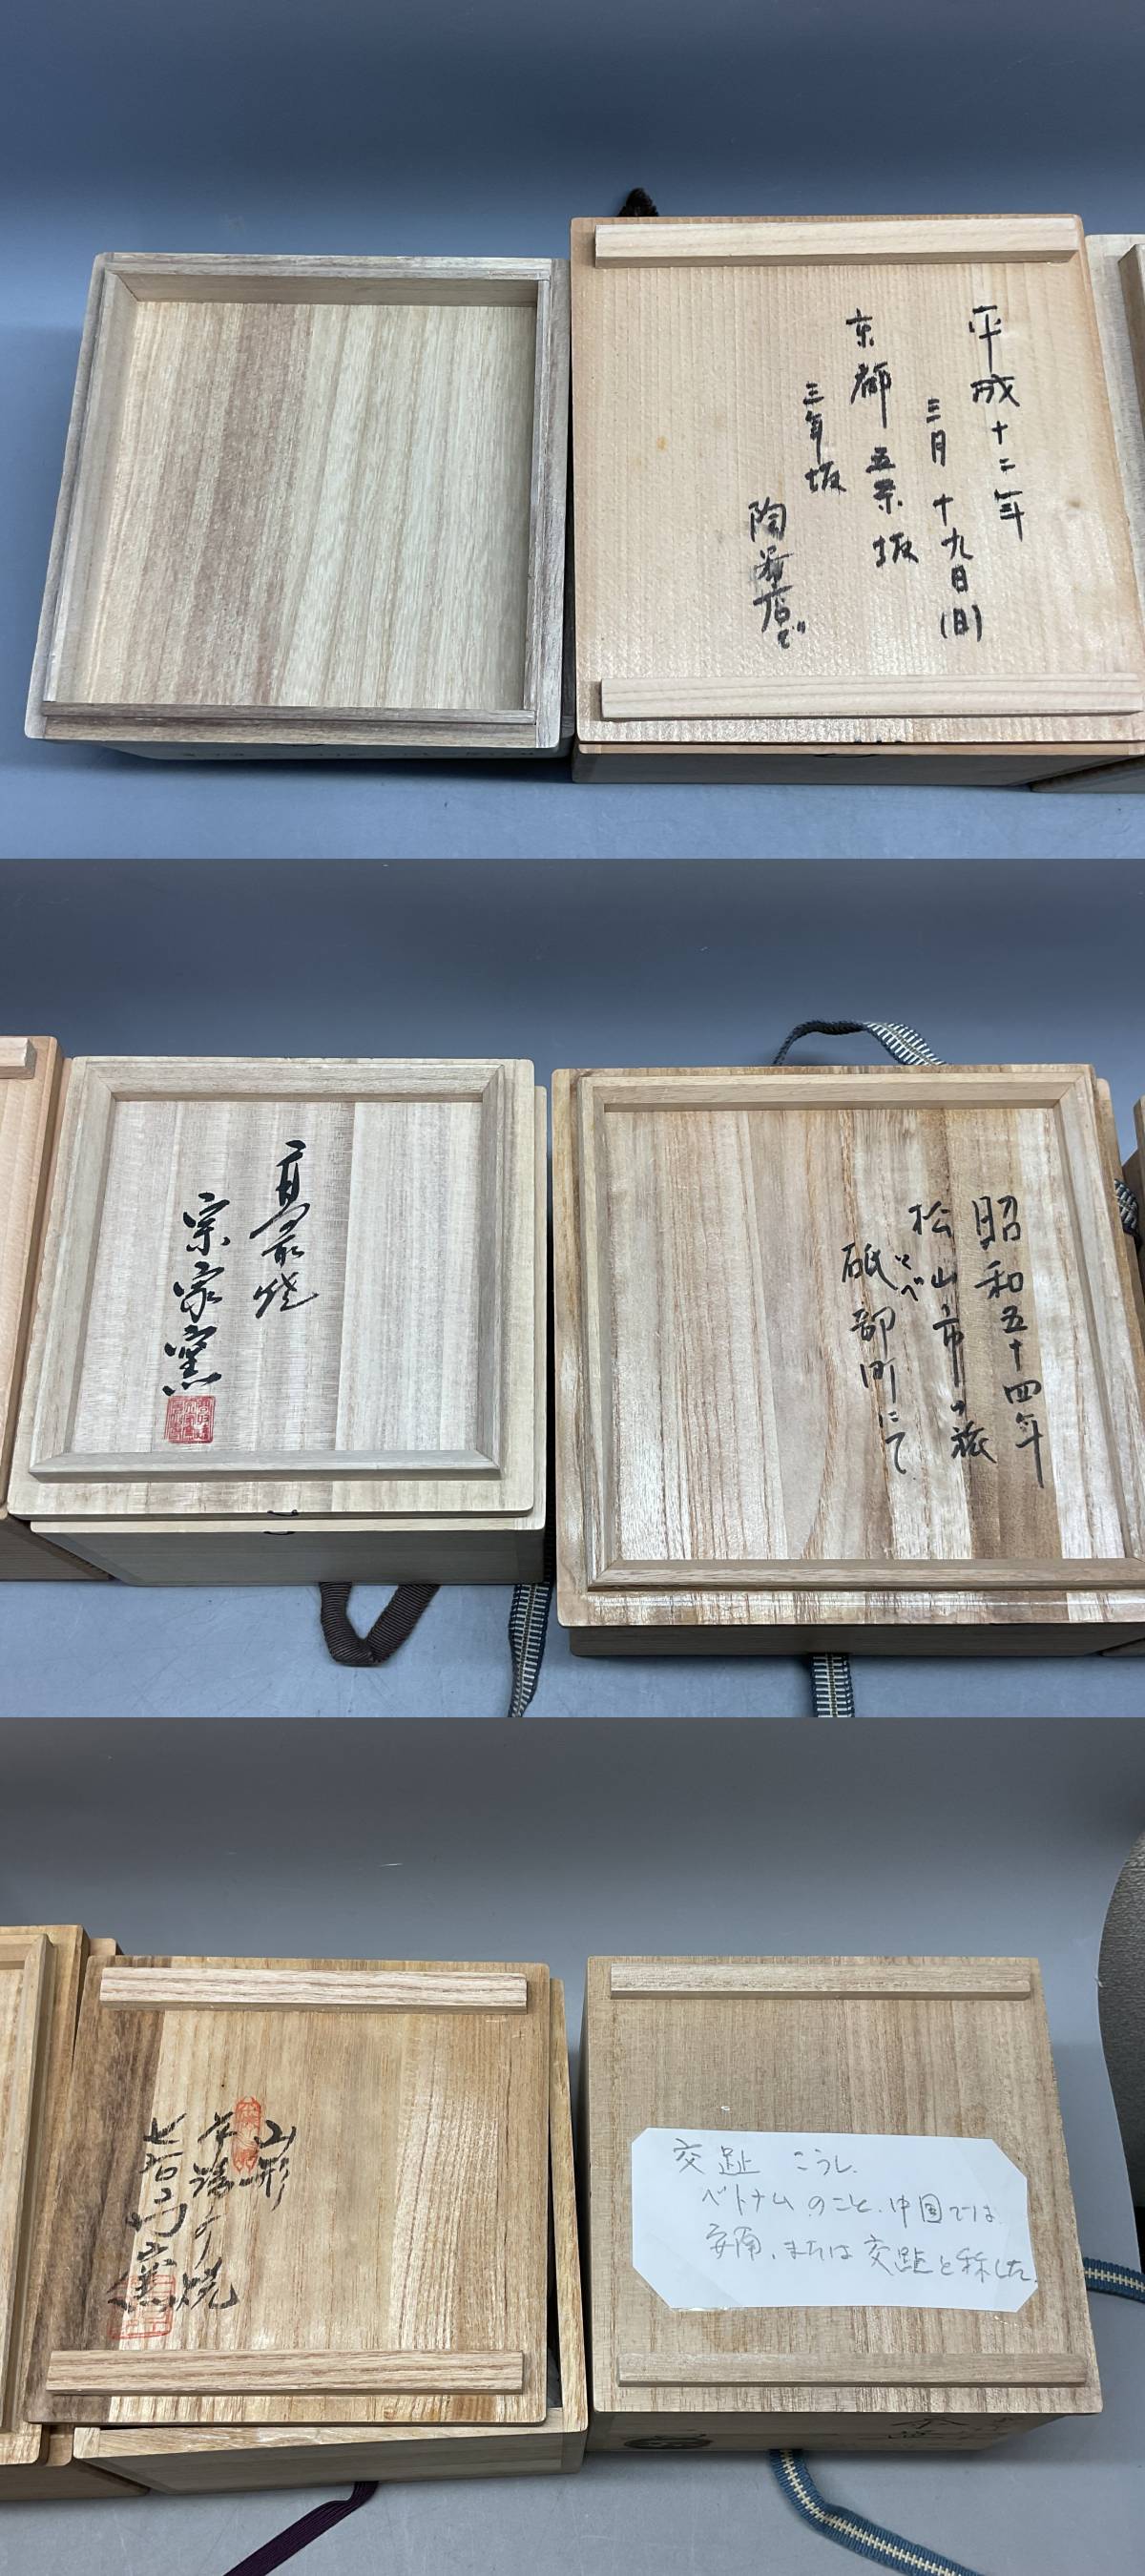 平成十二年
三月十九日(日)
京都五条坂
三年坂
陶器店で
髙取焼
宗家窯
昭和五十四年
松山市の旅
とべ
砥部町にて
山形
平清水焼
七右エ門窯
交趾 こうし
ベトナムのこと、中国では
安南、または交趾と称した。